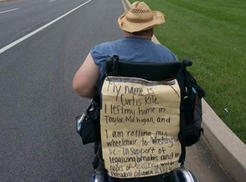 My name is
Curtis Kile
I left my home in
Taylor Michigan, and
I am rolling my
wheelchair to Washington
DC in support of
legalizing
President Obama